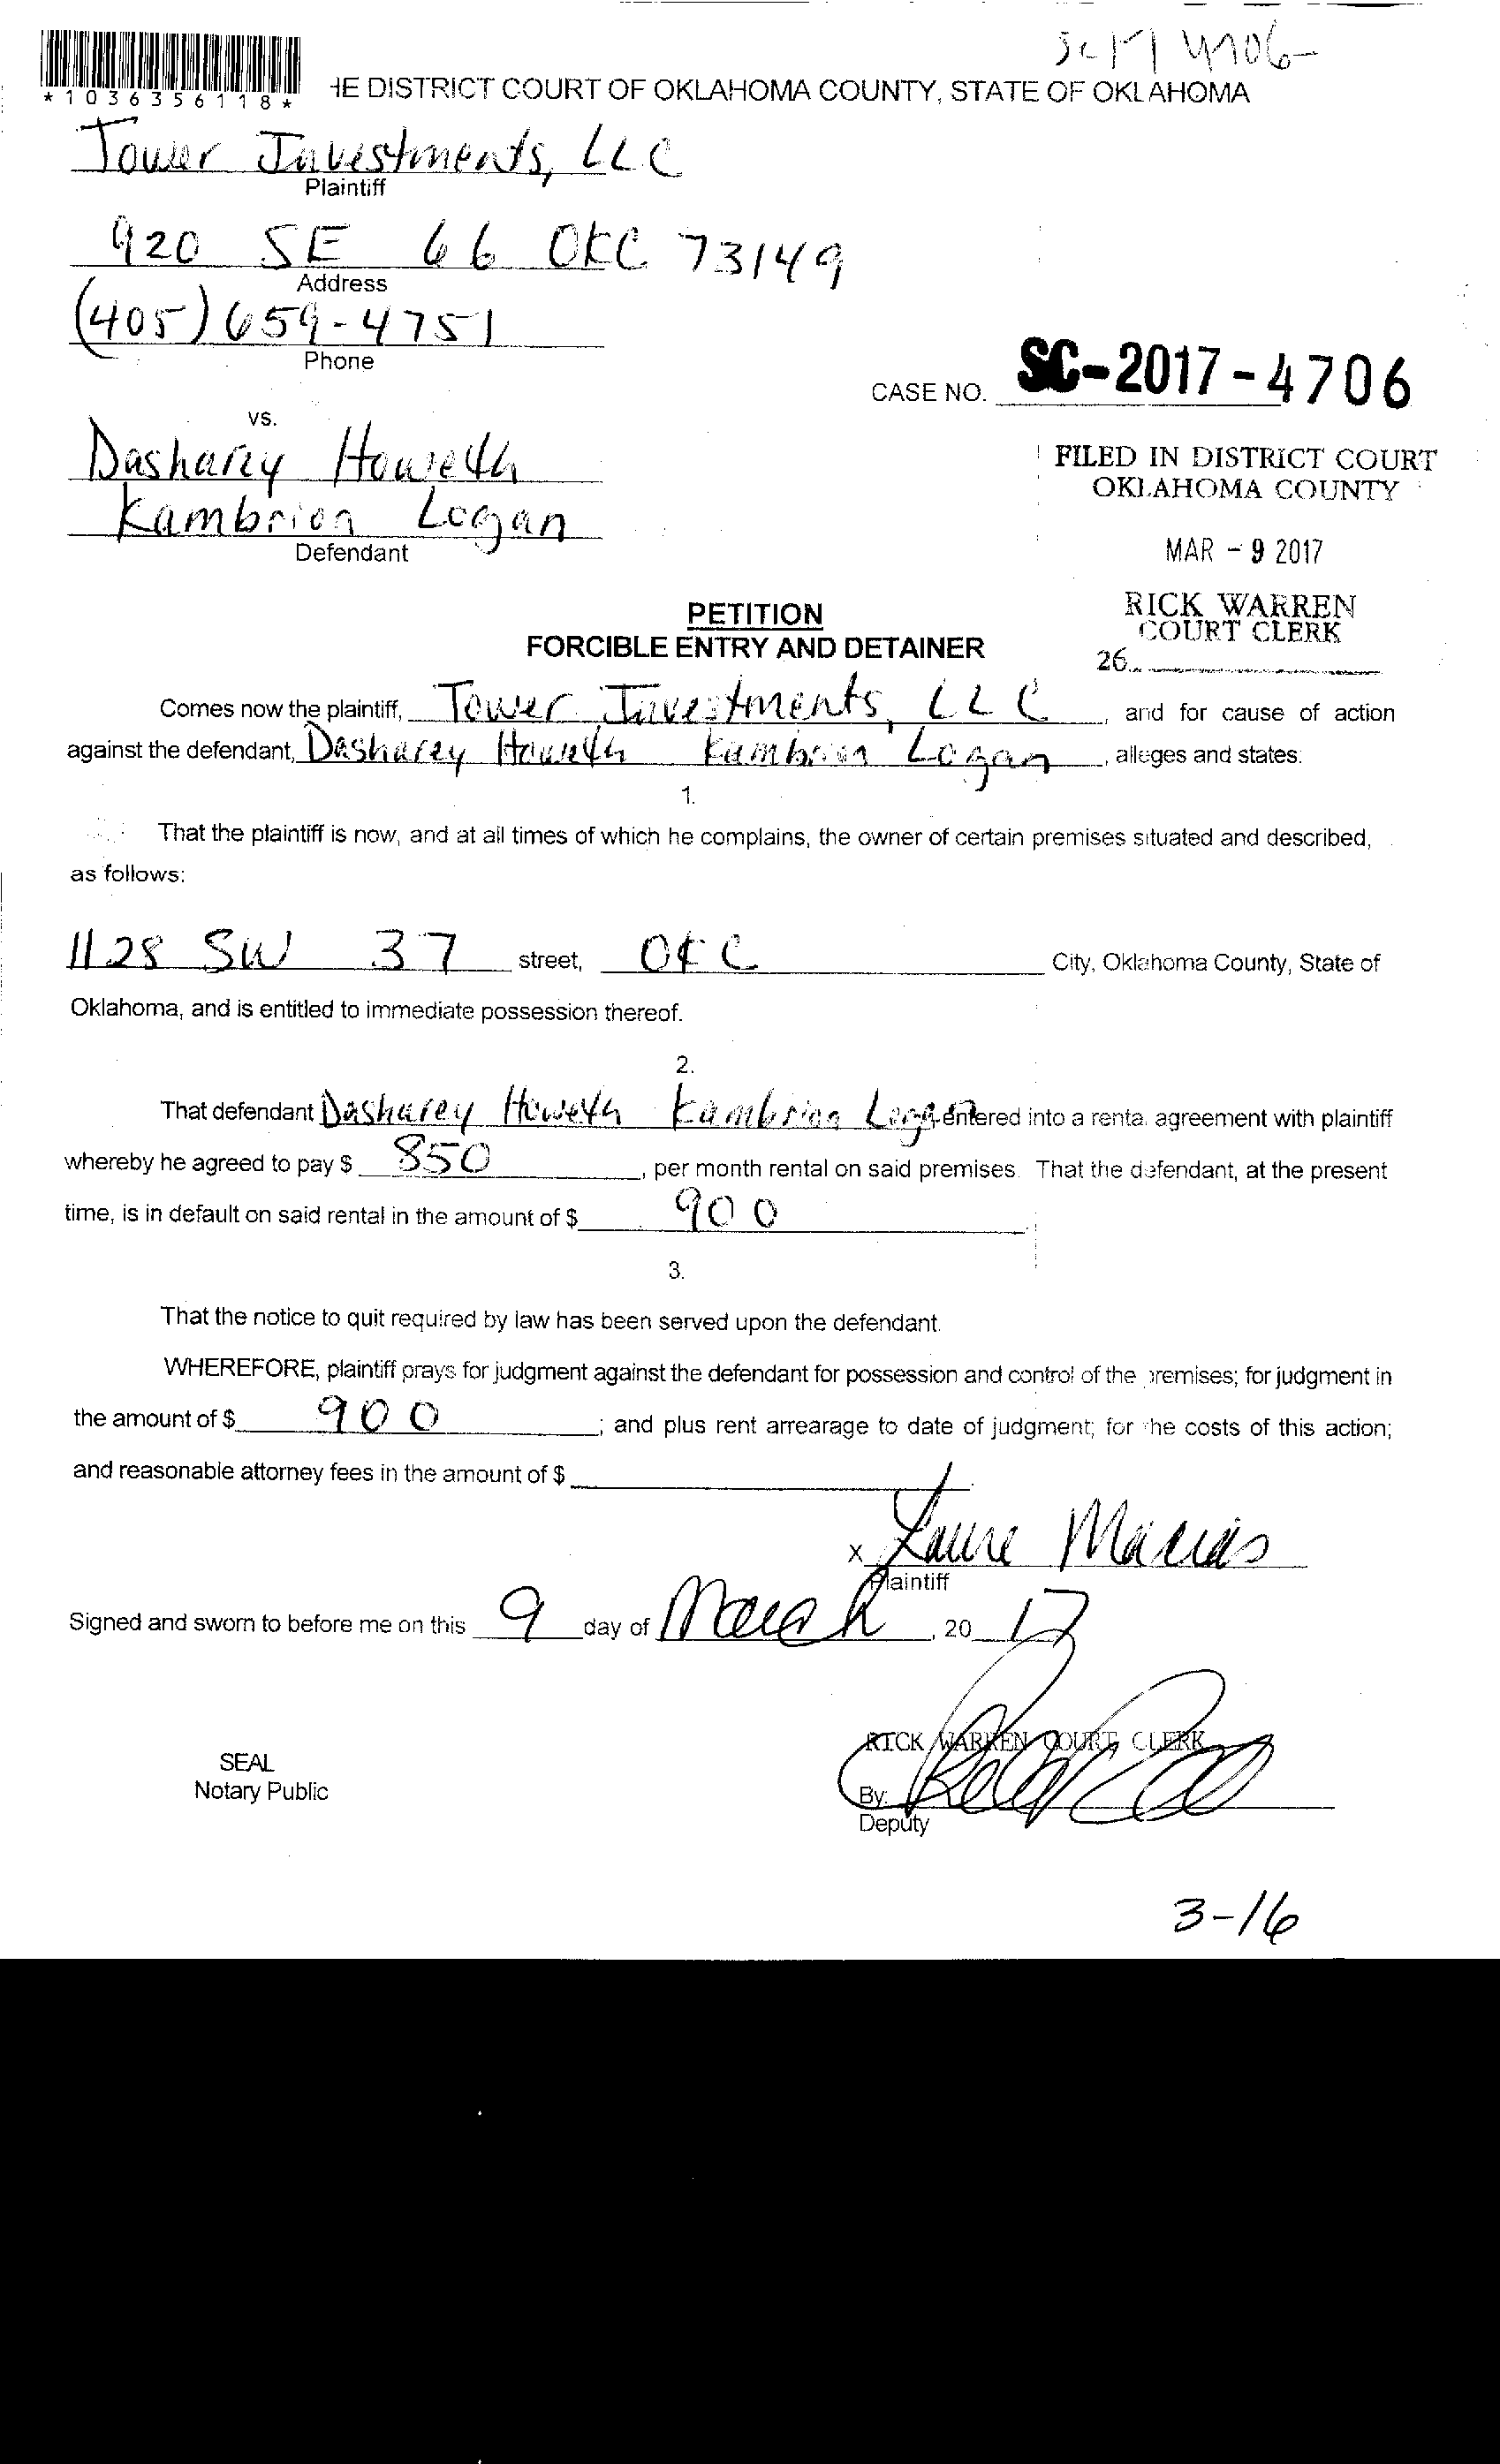 SC 17 4706
*1036356118*
HE DISTRICT COURT OF OKLAHOMA COUNTY, STATE OF OKLAHOMA
Tower Investments, LLC
Plaintiff
920 SE 66 OKC 73149
Address
(405) 659-4751
Phone
CASE NO. SC-2017-4706
vs.
Dasharey Howeth
Kambrion Logan
Defendant
FILED IN DISTRICT COURT
OKLAHOMA COUNTY
MAR - 9 2017
RICK WARREN
COURT CLERK
26
PETITION
FORCIBLE ENTRY AND DETAINER
Comes now the plaintiff, Tower Investments, LLC, and for cause of action
against the defendant, Dasharey Howeth Kambrion Logan, alleges and states:
1.
That the plaintiff is now, and at all times of which he complains, the owner of certain premises situated and described,
as follows:
1128 SW 37 street, OKC City, Oklahoma County, State of
Oklahoma, and is entitled to immediate possession thereof.
2.
That defendant Dasharey Howeth Kambrion Logan entered into a rental agreement with plaintiff
whereby he agreed to pay $ 850, per month rental on said premises. That the defendant, at the present
time, is in default on said rental in the amount of $ 900.
3.
That the notice to quit required by law has been served upon the defendant.
WHEREFORE, plaintiff prays for judgment against the defendant for possession and control of the premises; for judgment in
the amount of $ 900; and plus rent arrearage to date of judgment; for the costs of this action;
and reasonable attorney fees in the amount of $
x Laure Macias
Plaintiff
Signed and sworn to before me on this 9 day of March, 20 17
RICK WARREN COURT CLERK
SEAL
Notary Public
By:
Deputy
3-16